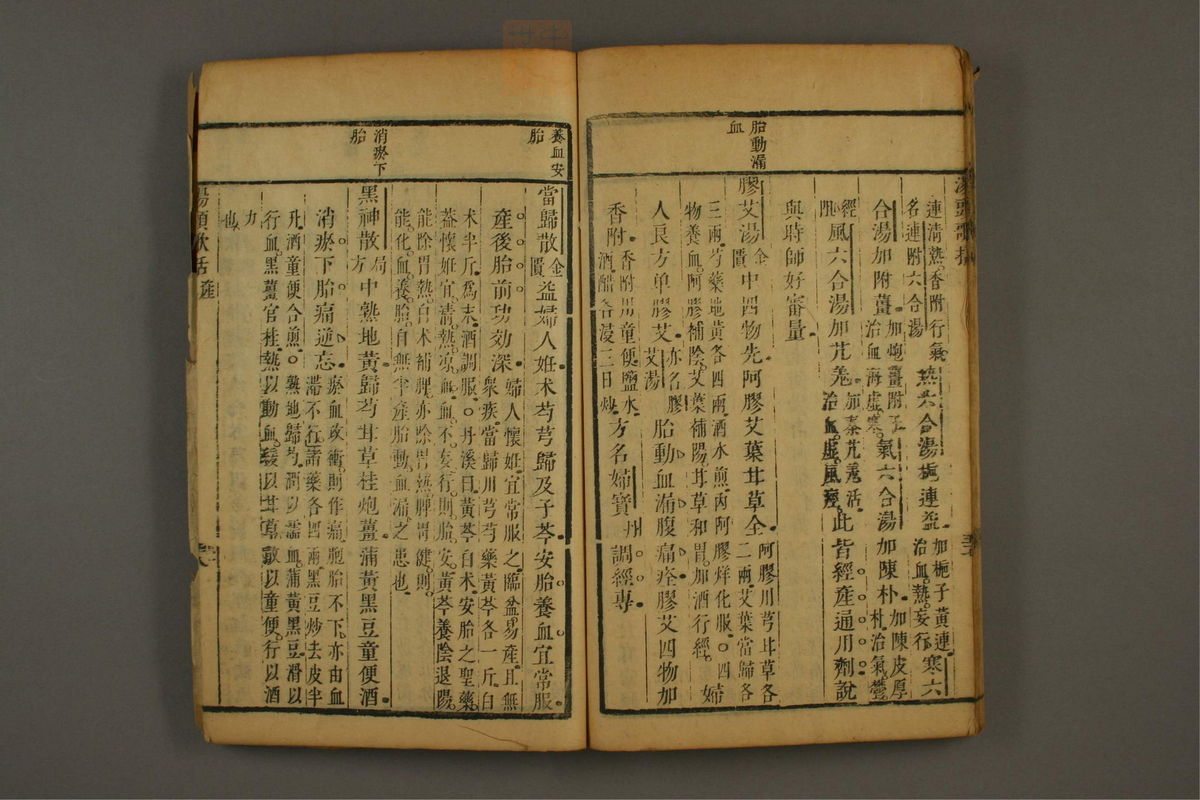 湯頭歌括
胎動漏血
連清熱香附行氣
名連附六合湯
熱六合湯梔連益
加梔子黃連
治血熱妄行
寒六
合湯加附薑
加炮薑附子
治血海虛寒
氣六合湯加陳朴
加陳皮厚
朴治氣鬱
經脈
風六合湯加艽羌
加秦艽羌活
治血虛風痙
此皆經產通用劑說
與時師好審量
膠艾湯
金匱
中四物先阿膠艾葉甘草全
阿膠川芎甘草各
二兩艾葉當歸各
三兩芍藥地黃各四兩酒水煎內阿膠烊化服○四
物養血阿膠補陰艾葉補陽甘草和胃加酒行經
婦
人良方單膠艾
亦名膠
艾湯
胎動血漏腹痛痊膠艾四物加
香附
香附用童便鹽水
酒醋各浸三日炒
方名婦寶
調經專
養血安胎
消瘀下胎
當歸散
金匱
益婦人妊朮芍芎歸及子芩安胎養血宜常服
產後胎前功效深
婦人懷妊宜常服之臨盆易產且無
眾疾當歸川芎芍藥黃芩各一斤白
朮半斤為末酒調服○丹溪曰黃芩白朮安胎之聖藥
蓋懷妊宜清熱涼血血不妄行則胎安黃芩養陰退陽
能除胃熱白朮補脾亦除胃熱脾胃健則
能化血養胎自無半產胎動血漏之患也
黑神散
局方
中熟地黃歸芍甘草桂炮薑蒲黃黑豆童便酒
消瘀下胎痛逆忘
瘀血攻衝則作痛胞胎不下亦由血
滯不行諸藥各四兩黑豆炒去皮半
升酒童便合煎○熟地歸芍潤以濡血蒲黃黑豆滑以
行血黑薑官桂熱以動血緩以甘草散以童便行以酒
力
也
湯頭歌括
產